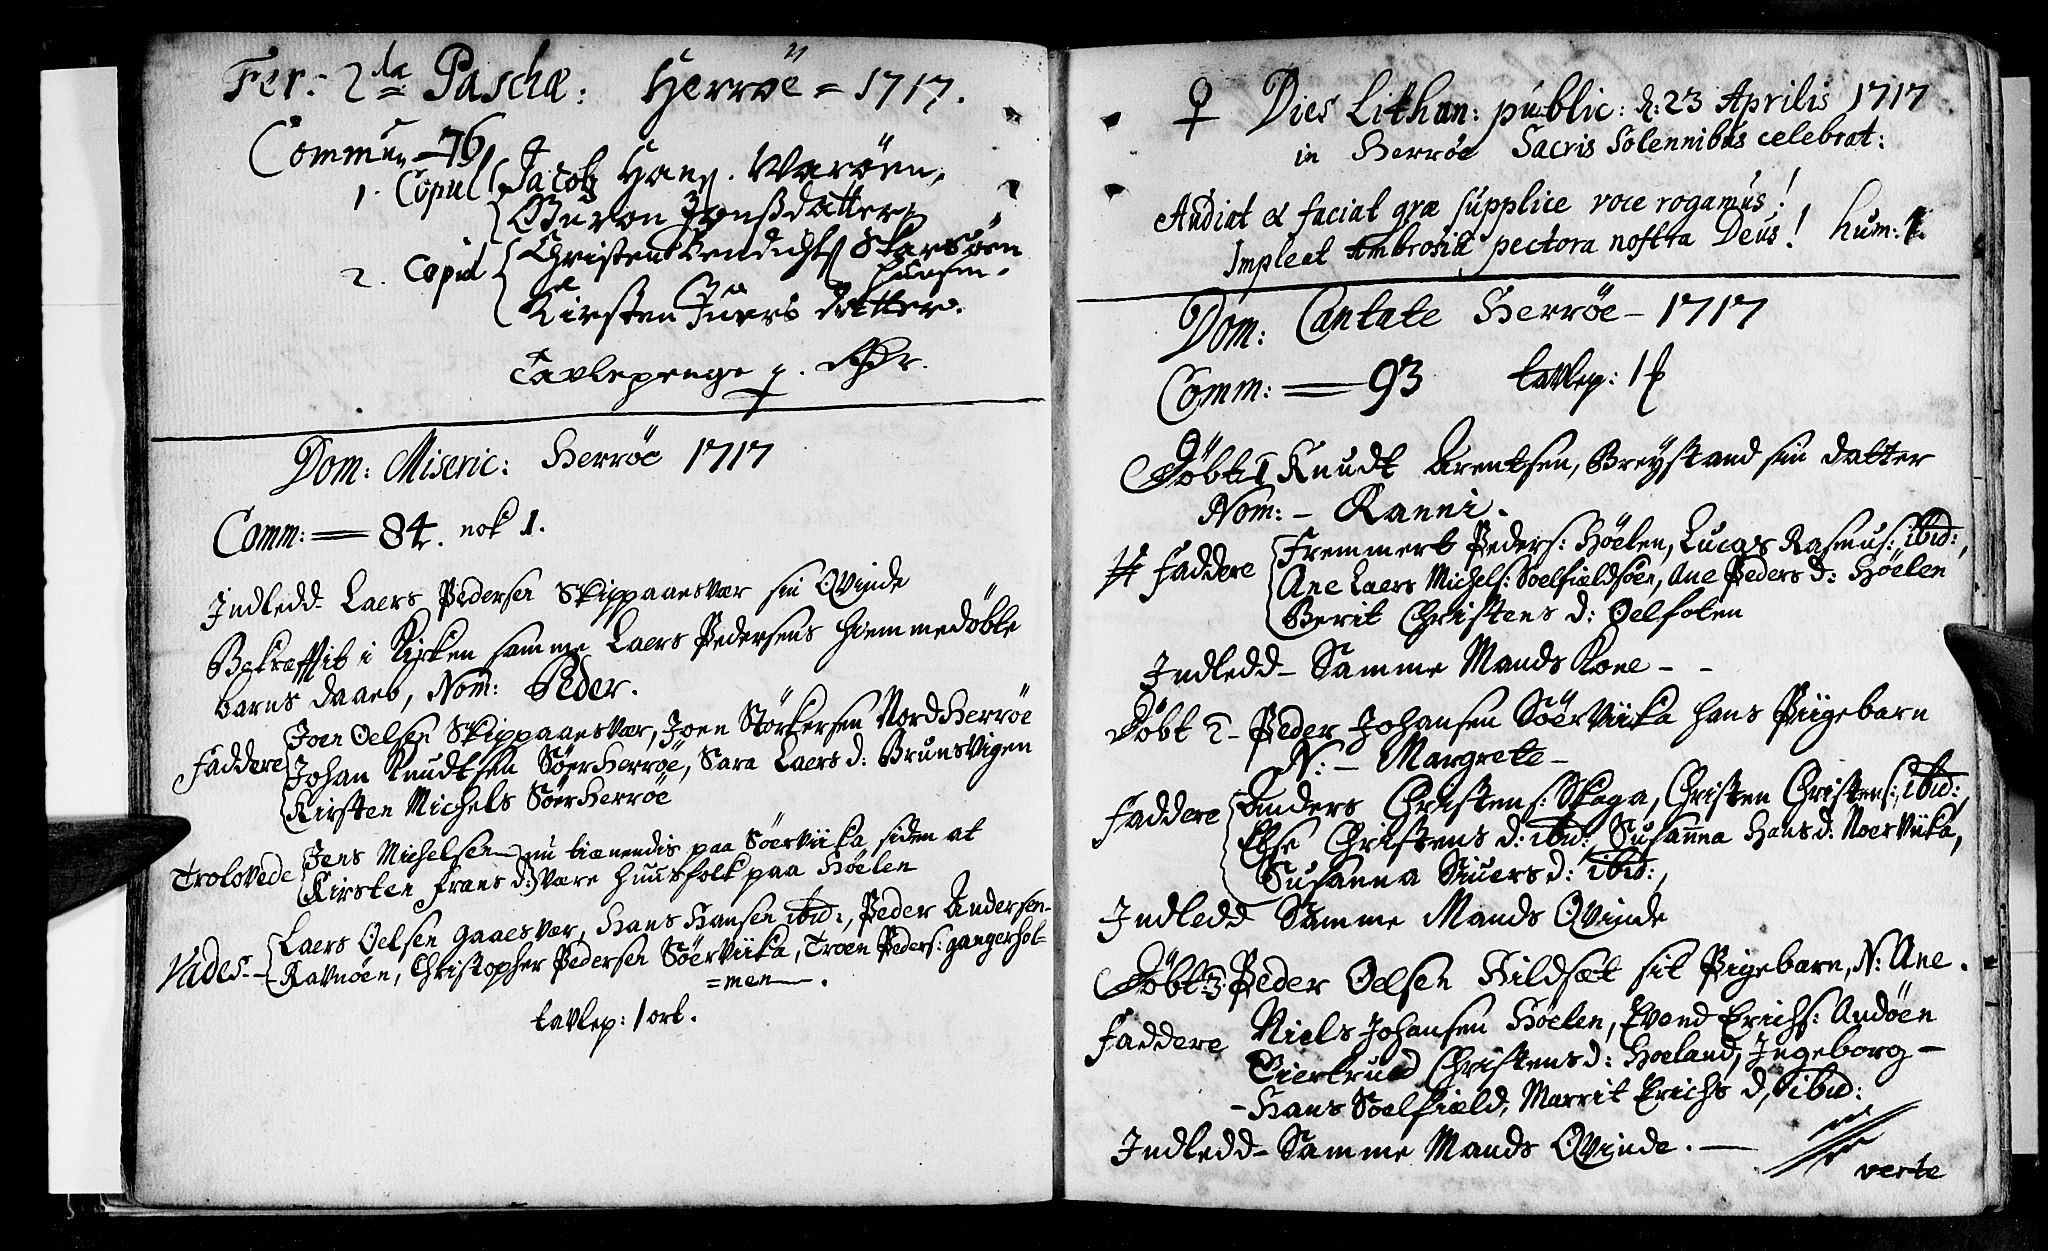 Fer: 2da Paschæ: Herröe = 1717.
Commun 76
1. Copul Jacob Hans. Waröen,
Guron Jonsdatter
2. Copul Christen Bendichs Skarsöen
Huusm.
Kirsten Juers datter.
Tavlepenge
Dom: Miseric: Herröe 1717
Comm: = 84. nok 1.
Indledd Laers Pedersen Skippaaesvær sin Qvinde
Bekræfftit i Kirken samme Laers Pedersens hiemmedöbte
barns daaeb, Nom: Peder.
Faddere Joen Oelsen Skippaaesvær, Joen Störkersen Nordherröe
Johan Knudtsen Söerherröe, Sara Laers d: Brunsvigen
Kirsten Michels Söerherröe
Trolovede Jens Michelsen nu tienendis paa Söerviika, siden at
Kirsten Frans d: være huusfolk paa Höelen
Vades Laers Oelsen Gaaesvær, Hans Hansen ibid:, Peder Andersen
Ravnöen, Christopher Pedersen Söerviika, Troen Peders: gangerhol-
=men.
tavlep: 1 ort.
♀ Dies Lithan: public: d: 23 Aprilis 1717
in Herröe Sacris Solennibus celebrat:
Audiat et faciat qræ supplice voce rogamus!
Impleat Ambrosia pectora nostra Deus! hum: 1.
Dom: Cantate Herröe - 1717
Comm: = 93 tavlep: 1
Döbt 1 Knudt Arentsen, Breystand sin datter
Nom: - Ranni.
Faddere Fremmert Peders: Höelen, Lucas Rasmus: ibid:,
Ane Laers Michels: Soelfieldsöen, Ane Peders d: Höelen
Berit Christens d: Oelfoten
Indledd - Samme Mands Kone - -
Döbt 2 - Peder Johansen Söerviika hans Piigebarn
N: - Margrete -
Faddere Anders Christens: Skaga, Christen Christens: ibid:,
Else Christens d: ibid: Susanna Hans d: Noerviika,
Susanna Siuers d: ibid:,
Indledd Samme Mands Qvinde
Döbt 3 Peder Oelsen Hildsæt sit Pigebarn, N: Ane.
Faddere Niels Johansen Höelen, Evend Erichs: Andöen
Giertrued Christens d: Hoeland, Ingeborg -
- Hans Soelfiæld, Marrit Erichs d, ibid:
Indledd - Samme Mands Qvinde. -
verte